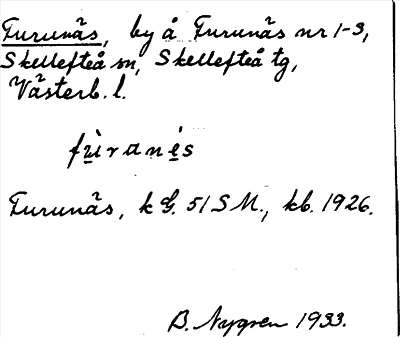 Furunäs, by å Furunäs nr 1-3,
Skellefteå sn, Skellefteå tg,
Västerb. l.
fù̲ranė̲s
Furunäs, k G. 51 S M., kb. 1926.
B. Nygren 1933.